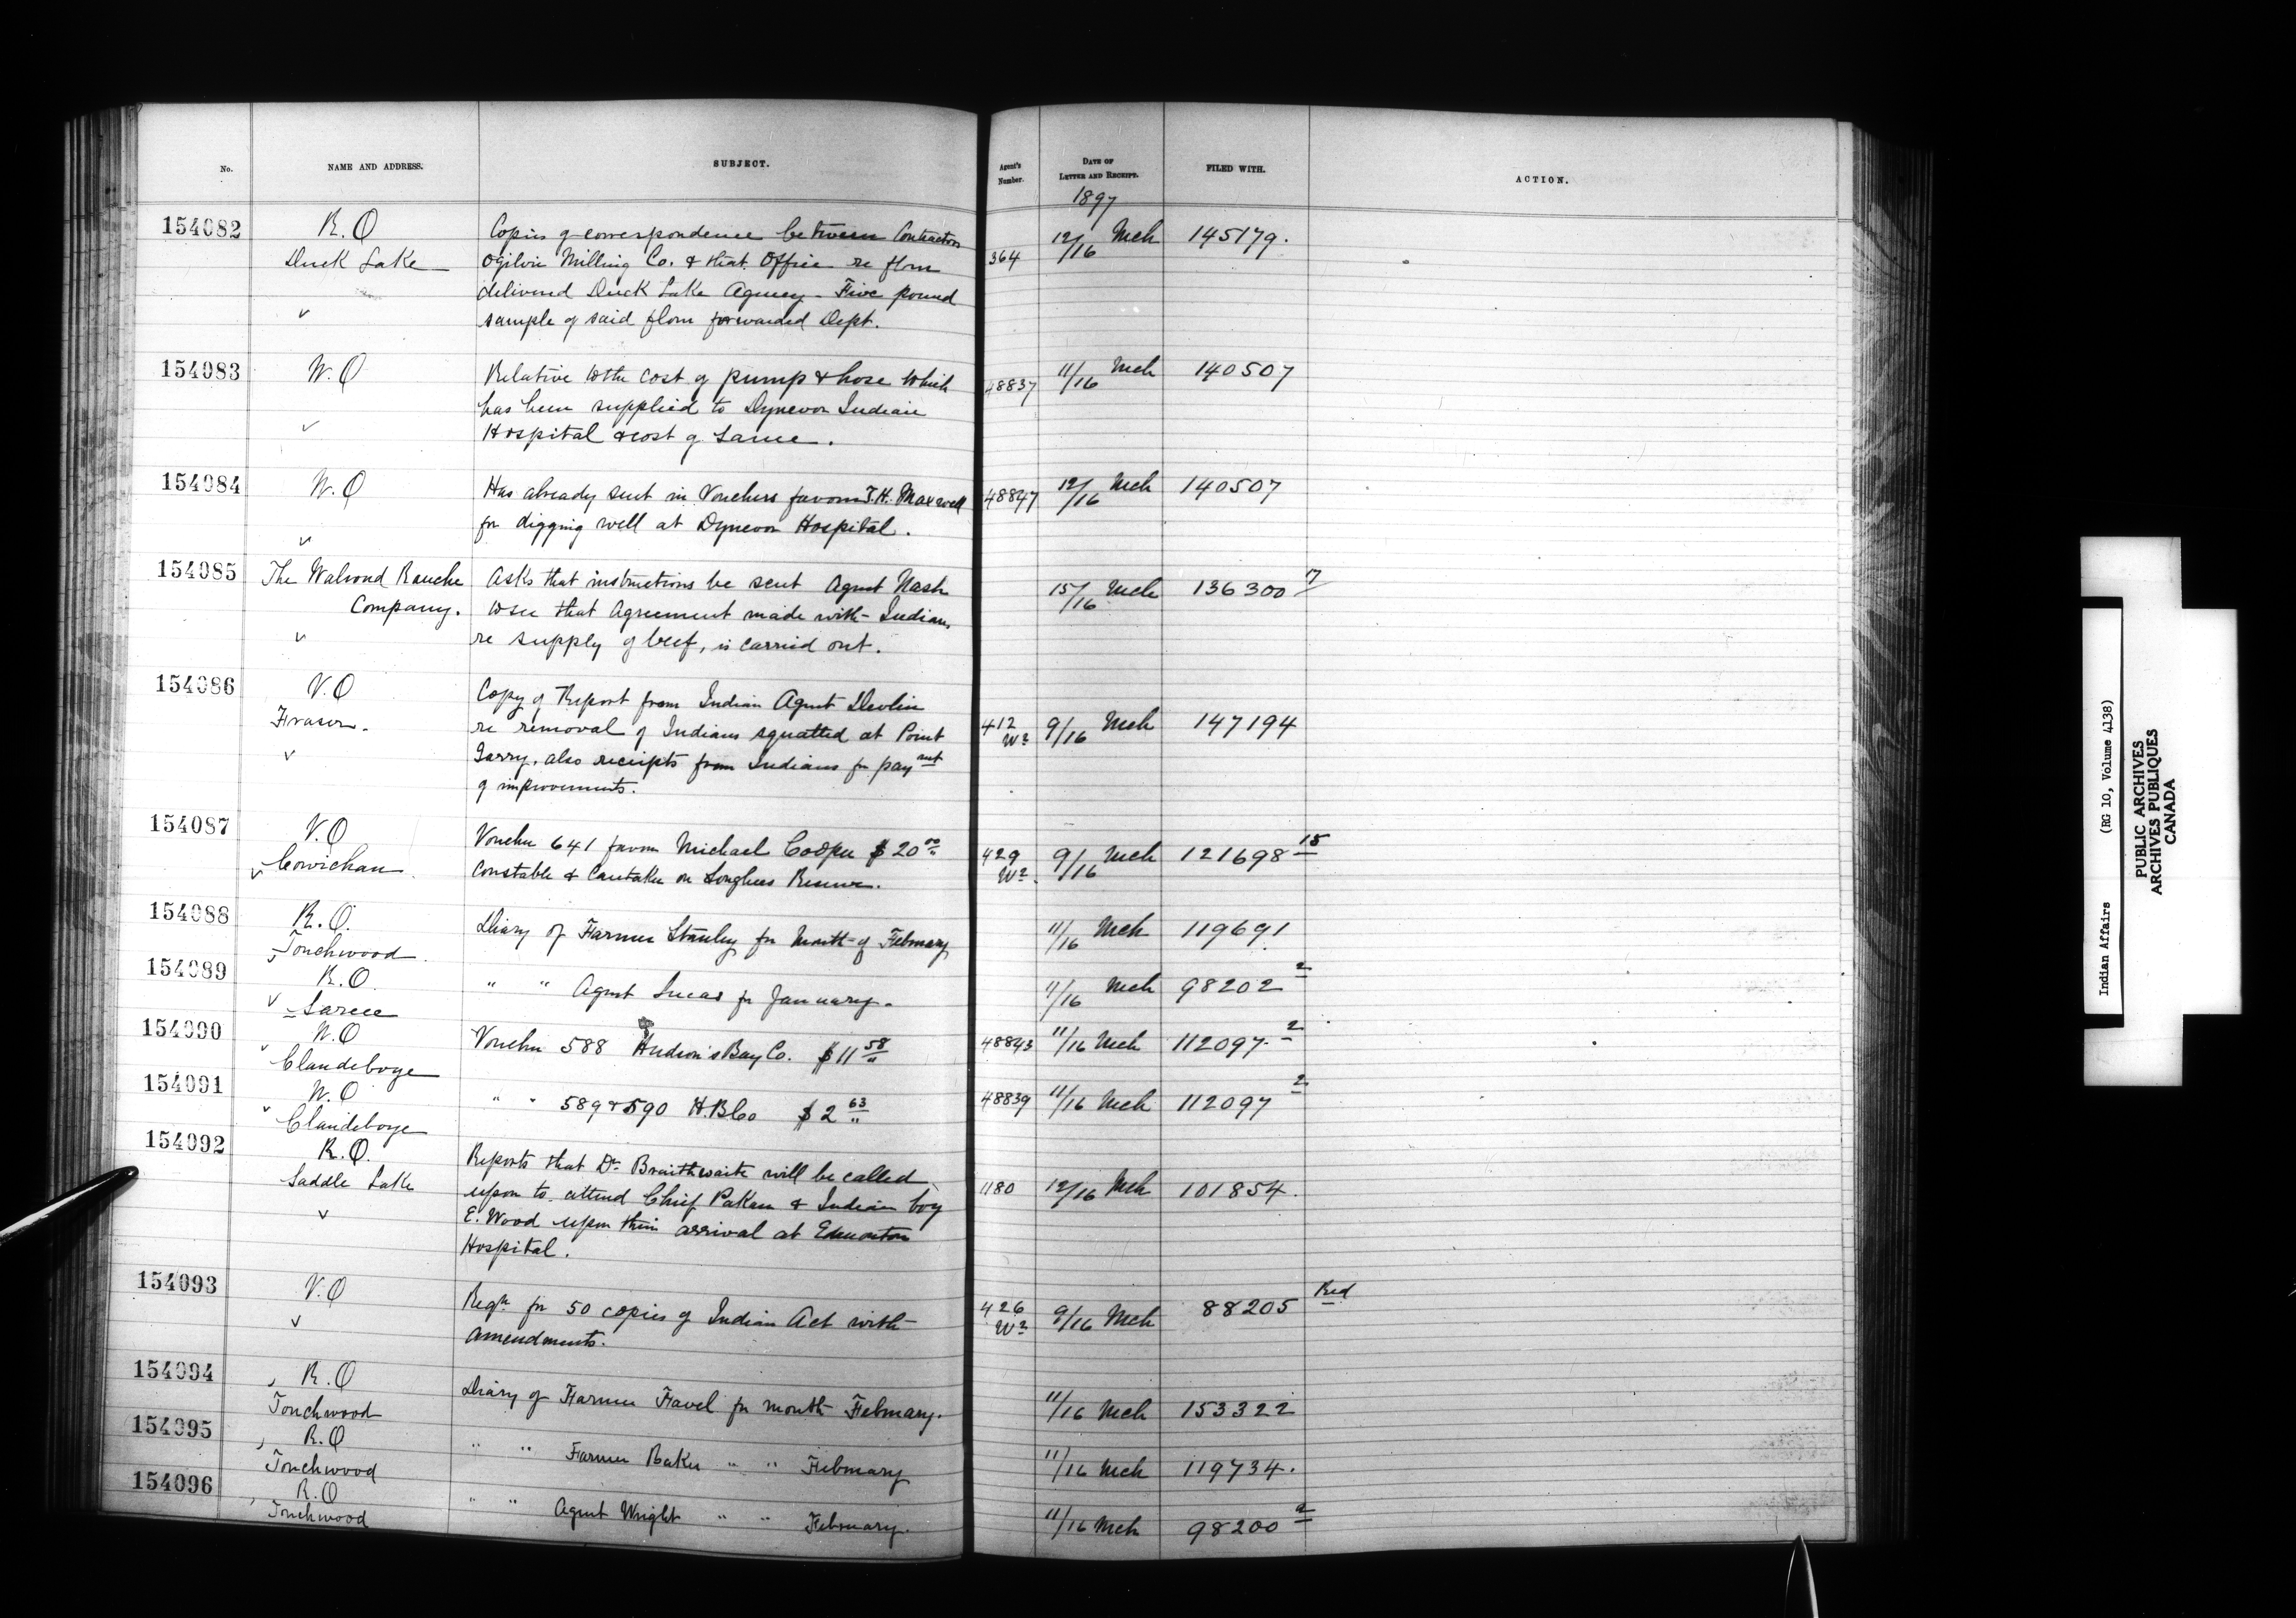 No. NAME AND ADDRESS. SUBJECT. Agent's Number. DATE OF LETTER AND RECEIPT. FILED WITH. ACTION.
1897
154082 R.O Copies of correspondence between Contractors 12/16 Mch 145179.
Duck Lake Ogilvie Milling Co. & that Office re flour 364
delivered Duck Lake Agency - Five pound
✓ sample of said flour forwarded Dept.
154083 W.O Relative to the cost of pump & hose which 48837 11/16 Mch 140507
has been supplied to Dynevor Indian
✓ Hospital & cost of same.
154084 W.O Has already sent in Vouchers favour T.H. Maxwell 48847 12/16 Mch 140507
✓ for digging well at Dynevor Hospital.
154085 The Walrond Ranche Asks that instructions be sent Agent Nash 15/16 Mch 136300 17
Company. to see that Agreement made with Indians
✓ re supply of beef, is carried out.
154086 V.O Copy of Report from Indian Agent Devlin
Fraser. re removal of Indians squatted at Point 412 W2 9/16 Mch 147194
✓ Garry, also receipts from Indians for paymt
of improvements.
154087 V.O Voucher 641 favour Michael Cooper $20 00 429 W2. 9/16 Mch 121698 15
✓ Cowichan Constable & Caretaker on Songhees Reserve.
154088 R.O. Diary of Farmer Stanley for Month of February 11/16 Mch 119691
Touchwood.
154089 R.O. " " Agent Lucas for January. 11/16 Mch 98202 2
✓ Sarcee
154090 W.O Voucher 588 Hudson's Bay Co. $11 58 48843 11/16 Mch 112097. 2
Clandeboye
154091 W.O " " 589 & 590 H.B Co $2 63 48839 11/16 Mch 112097 2
Clandeboye
154092 R.O. Reports that Dr Braithwaite will be called
Saddle Lake upon to attend Chief Pakan & Indian boy 1180 12/16 Mch 101854.
✓ E. Wood upon their arrival at Edmonton
Hospital.
154093 V.O Reqn for 50 copies of Indian Act with 426 W2 9/16 Mch 88205 Red
✓ amendments.
154094 R.O Diary of Farmer Favel for month February. 11/16 Mch 153322
Touchwood
154095 R.O " " Farmer Baker " " February 11/16 Mch 119734.
Touchwood
154096 R.O " " Agent Wright " " February. 11/16 Mch 98200 2
Touchwood
Indian Affairs (RG 10, Volume 4138)
PUBLIC ARCHIVES
ARCHIVES PUBLIQUES
CANADA